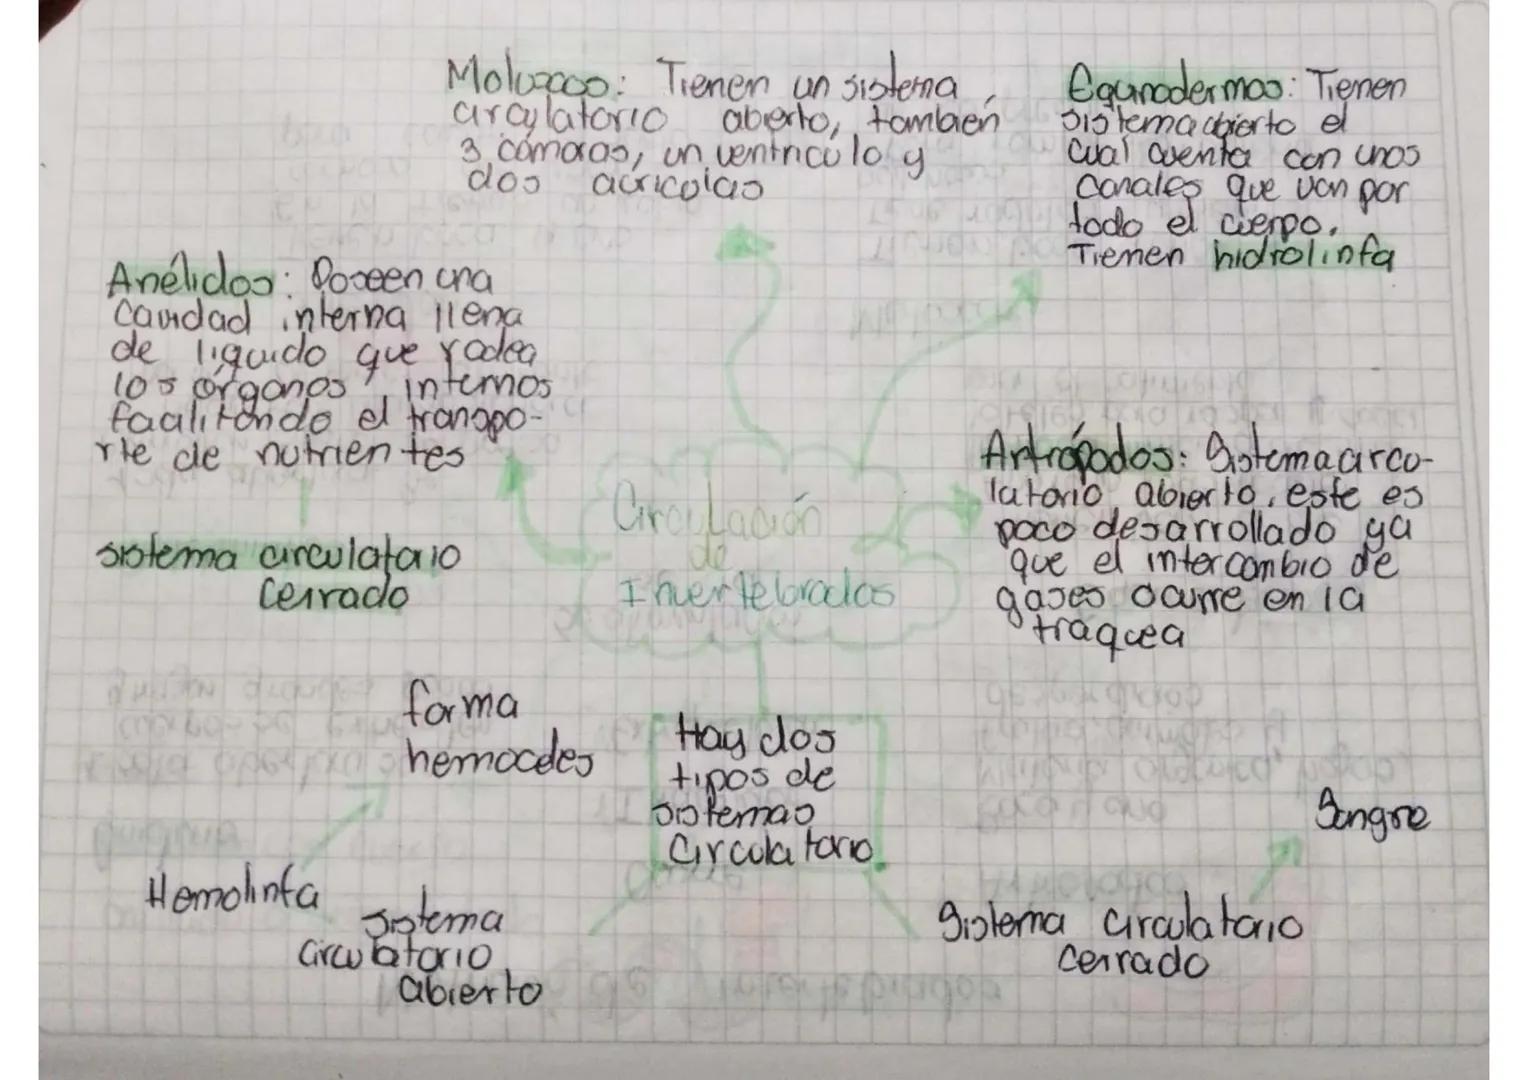 Moluzcos: Tienen un sistema
circulatorio abierto, también
3 cámaras, un ventriculo y
dos aurículas
Equinodermos: Tienen
sistema abierto el
cual cuenta con unos
canales que van por
todo el cuerpo.
Tienen hidrolinfa
Anélidos: Poseen una
cavidad interna llena
de liquido que rodea
los órganos internos
facilitando el transpo-
rte de nutrientes
sistema circulatorio
cerrado
Circulación
de
Invertebrados
Artrópodos: Sistema circu-
latorio abierto, este es
poco desarrollado ya
que el intercambio de
gases ocurre en la
tráquea
forma
hemoceles
Hay dos
tipos de
sistemas
Circulatorio
Sangre
Hemolinfa
Sistema
circulatorio
abierto
Sistema circulatorio
cerrado